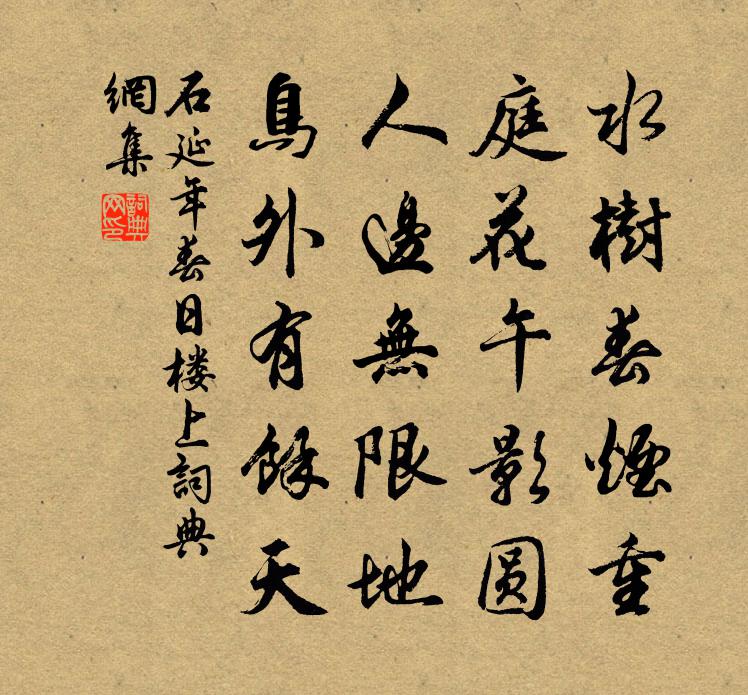 水樹春煙重
庭花午影圆
人邊無限地
鳥外有餘天
石延年春日楼上詞典
網集
詞典
网印